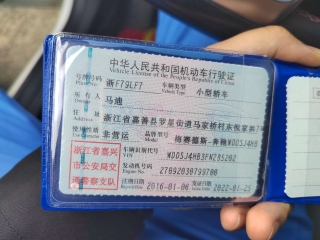 中华人民共和国机动车行驶证
Vehicle License of the People's Republic of China
号牌号码 浙F79LF7 车辆类型 小型轿车
Plate No. Vehicle Type
所有人 马迪
Owner
住址 浙江省嘉善县罗星街道马家桥村东
Address
使用性质 非营运 品牌型号 梅赛德斯-奔驰
Use Character Model
浙江省嘉兴 车辆识别代号
VIN
市公安局交 发动机号码 27892030799700
Engine No.
通警支队 注册日期 2016-01-06 发证日期 2022-01-25
Register Date Issue Date